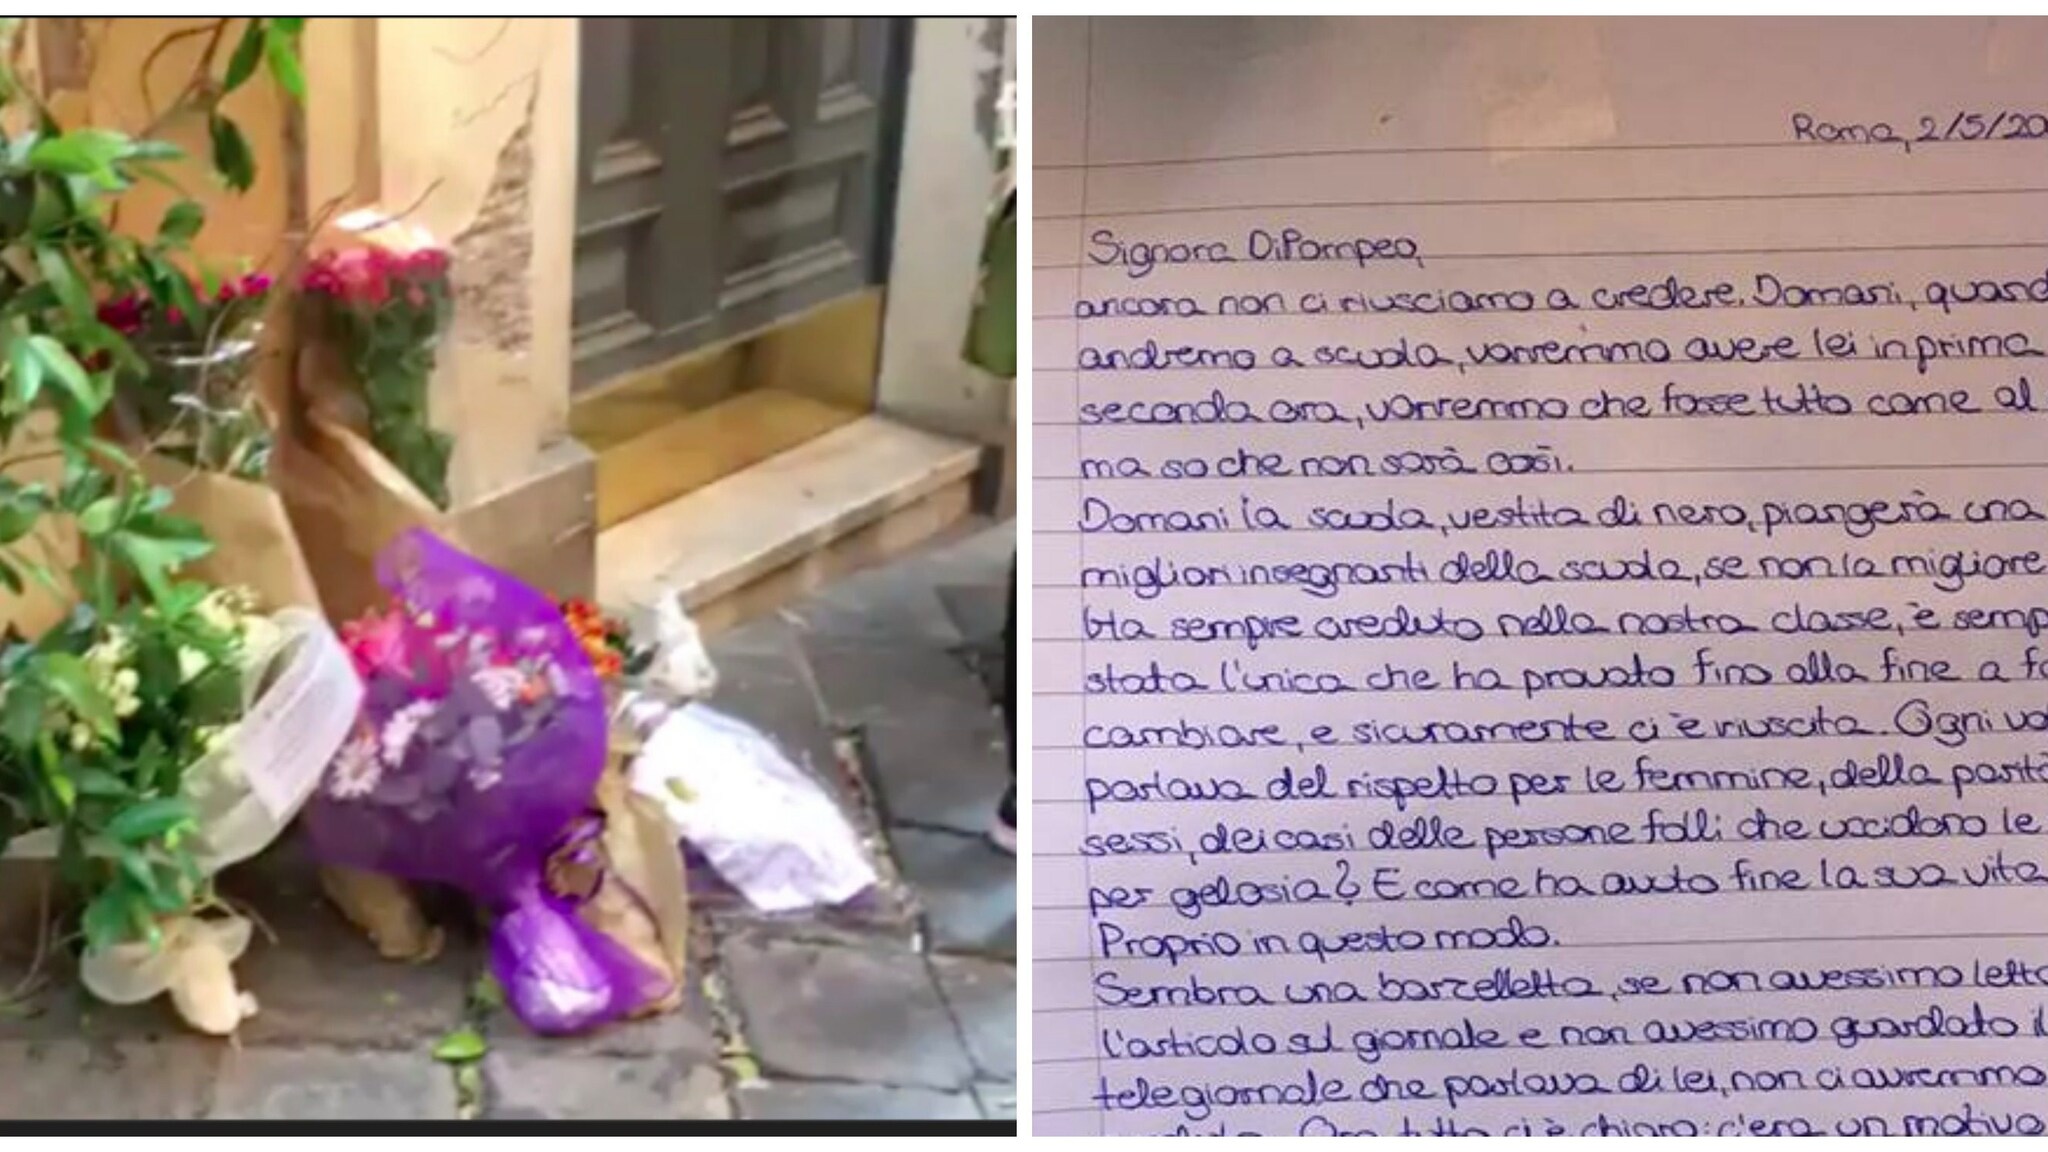 Roma, 2/5/20
Signora DiPompeo,
ancora non ci riusciamo a credere. Domani, quand
andremo a scuola, vorremmo avere lei in prima
seconda ora, vorremmo che fosse tutto come al
ma so che non sarà così.
Domani la scuola, vestita di nero, piangerà una
migliori insegnanti della scuola, se non la migliore
Ha sempre creduto nella nostra classe, è semp
stata l'unica che ha provato fino alla fine a fa
cambiare, e sicuramente ci è riuscita. Ogni vo
parlava del rispetto per le femmine, della parità
sessi, dei casi delle persone folli che uccidono le
per gelosia? E come ha avuto fine la sua vita
Proprio in questo modo.
Sembra una barzelletta, se non avessimo letto
l'articolo sul giornale e non avessimo guardato il
telegiornale che parlava di lei, non ci avremmo
Ora tutto ci è chiaro: c'era un motivo